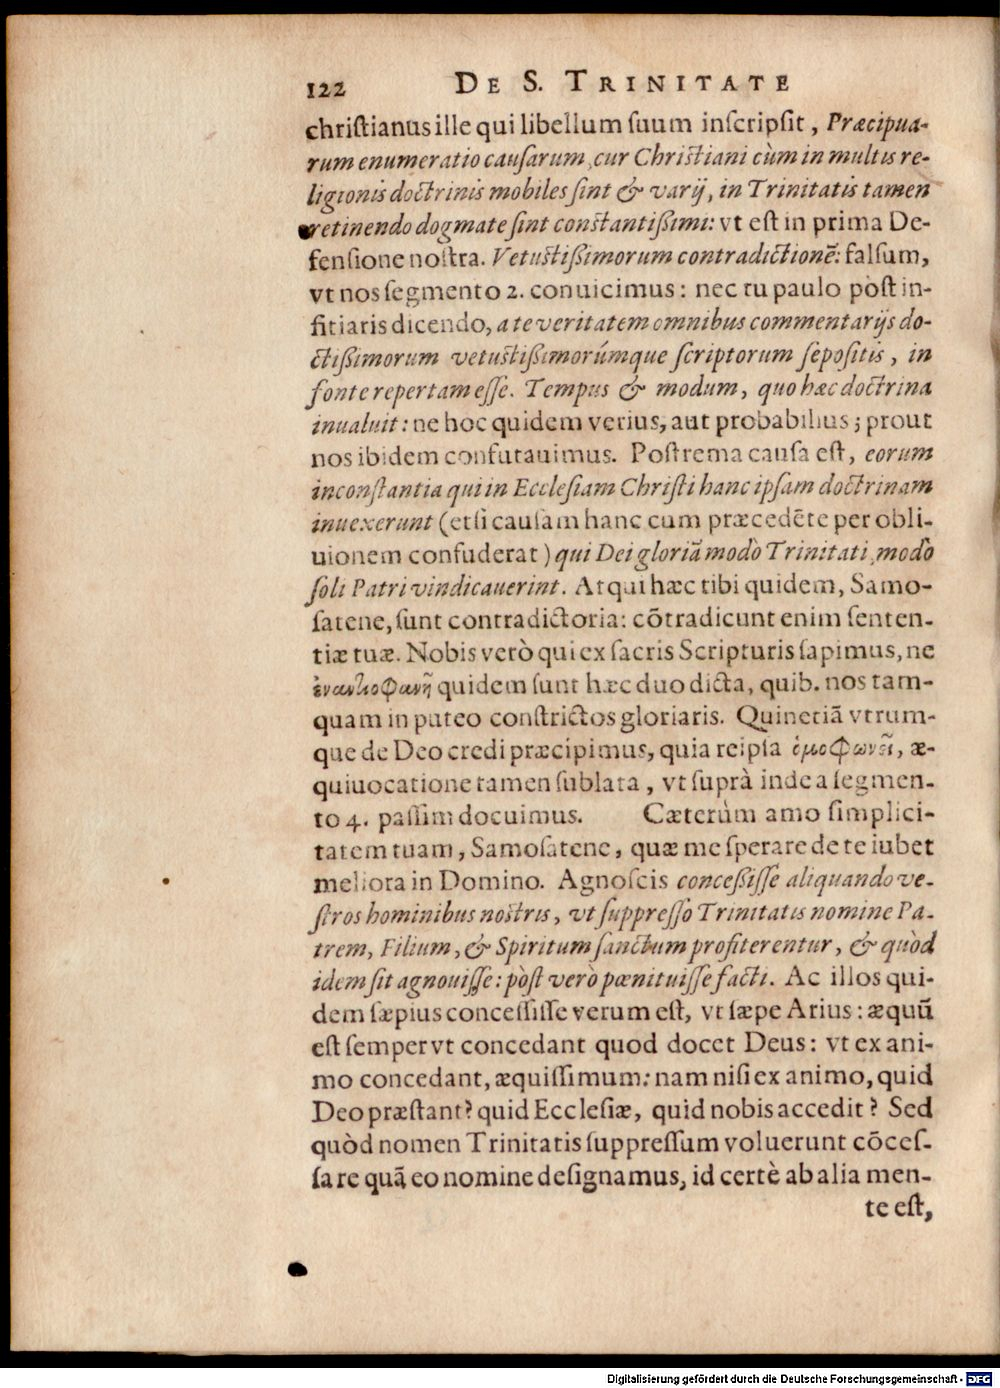 122 DE S. TRINITATE
chriſtianus ille qui libellum ſuum inſcripſit, Præcipua-
rum enumeratio cauſarum cur Chriſtiani cùm in multis re-
ligionis doctrinis mobiles ſint & varij, in Trinitatis tamen
retinendo dogmate ſint conſtantißimi: vt eſt in prima De-
fenſione noſtra. Vetuſtißimorum contradictionē: falſum,
vt nos ſegmento 2. conuicimus: nec tu paulo pòſt in-
fitiaris dicendo, a te veritatem omnibus commentarijs do-
ctißimorum vetuſtißimorúmque ſcriptorum ſepoſitis, in
fonte repertam eſſe. Tempus & modum, quo hæc doctrina
inualuit: ne hoc quidem verius, aut probabilius; prout
nos ibidem confutauimus. Poſtrema cauſa eſt, eorum
inconſtantia qui in Eccleſiam Chriſti hanc ipſam doctrinam
inuexerunt (etſi cauſam hanc cum præcedēte per obli-
uionem confuderat) qui Dei gloriā modò Trinitati, modò
ſoli Patri vindicauerint. Atqui hæc tibi quidem, Samo-
ſatene, ſunt contradictoria: cōtradicunt enim ſenten-
tiæ tuæ. Nobis verò qui ex ſacris Scripturis ſapimus, ne
ἐναντιοφανῆ quidem ſunt hæc duo dicta, quib. nos tam-
quam in puteo conſtrictos gloriaris. Quinetiā vtrum-
que de Deo credi præcipimus, quia reipſa ὁμοφωνεῖ, æ-
quiuocatione tamen ſublata, vt ſuprà inde a ſegmen-
to 4. paſſim docuimus. Cæterùm amo ſimplici-
tatem tuam, Samoſatene, quæ me ſperare de te iubet
meliora in Domino. Agnoſcis conceßiſſe aliquando ve-
ſtros hominibus noſtris, vt ſuppreſſo Trinitatis nomine Pa-
trem, Filium, & Spiritum ſanctum profiterentur, & quòd
idem ſit agnouiſſe: pòſt verò pœnituiſſe facti. Ac illos qui-
dem ſæpius conceſſiſſe verum eſt, vt ſæpe Arius: æquū
eſt ſemper vt concedant quod docet Deus: vt ex ani-
mo concedant, æquiſſimum: nam niſi ex animo, quid
Deo præſtant? quid Eccleſiæ, quid nobis accedit? Sed
quòd nomen Trinitatis ſuppreſſum voluerunt cōceſ-
ſa re quā eo nomine deſignamus, id certè ab alia men-
te eſt,
Digitalisierung gefördert durch die Deutsche Forschungsgemeinschaft - DFG